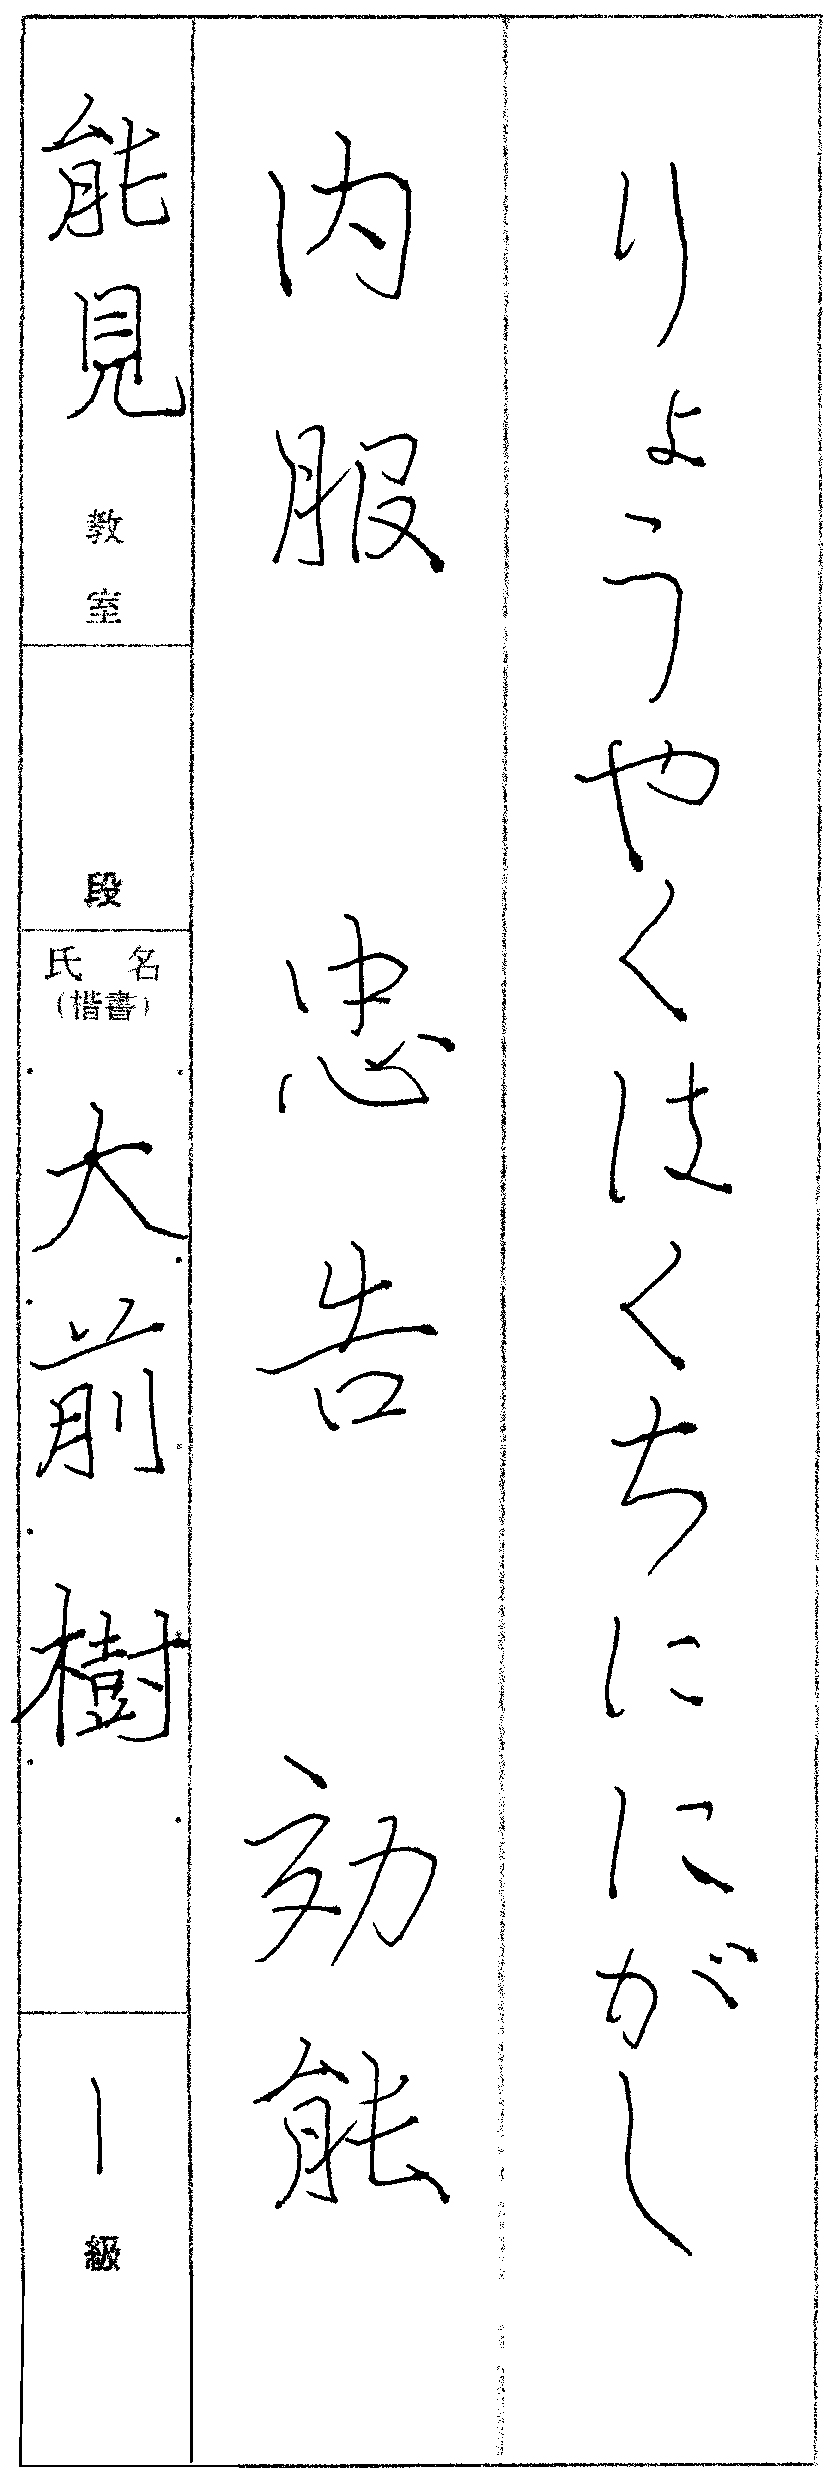 りょうやくはくちににがし
内服 忠告 効能
能見教室
段
氏名
(楷書)
大前樹
1級